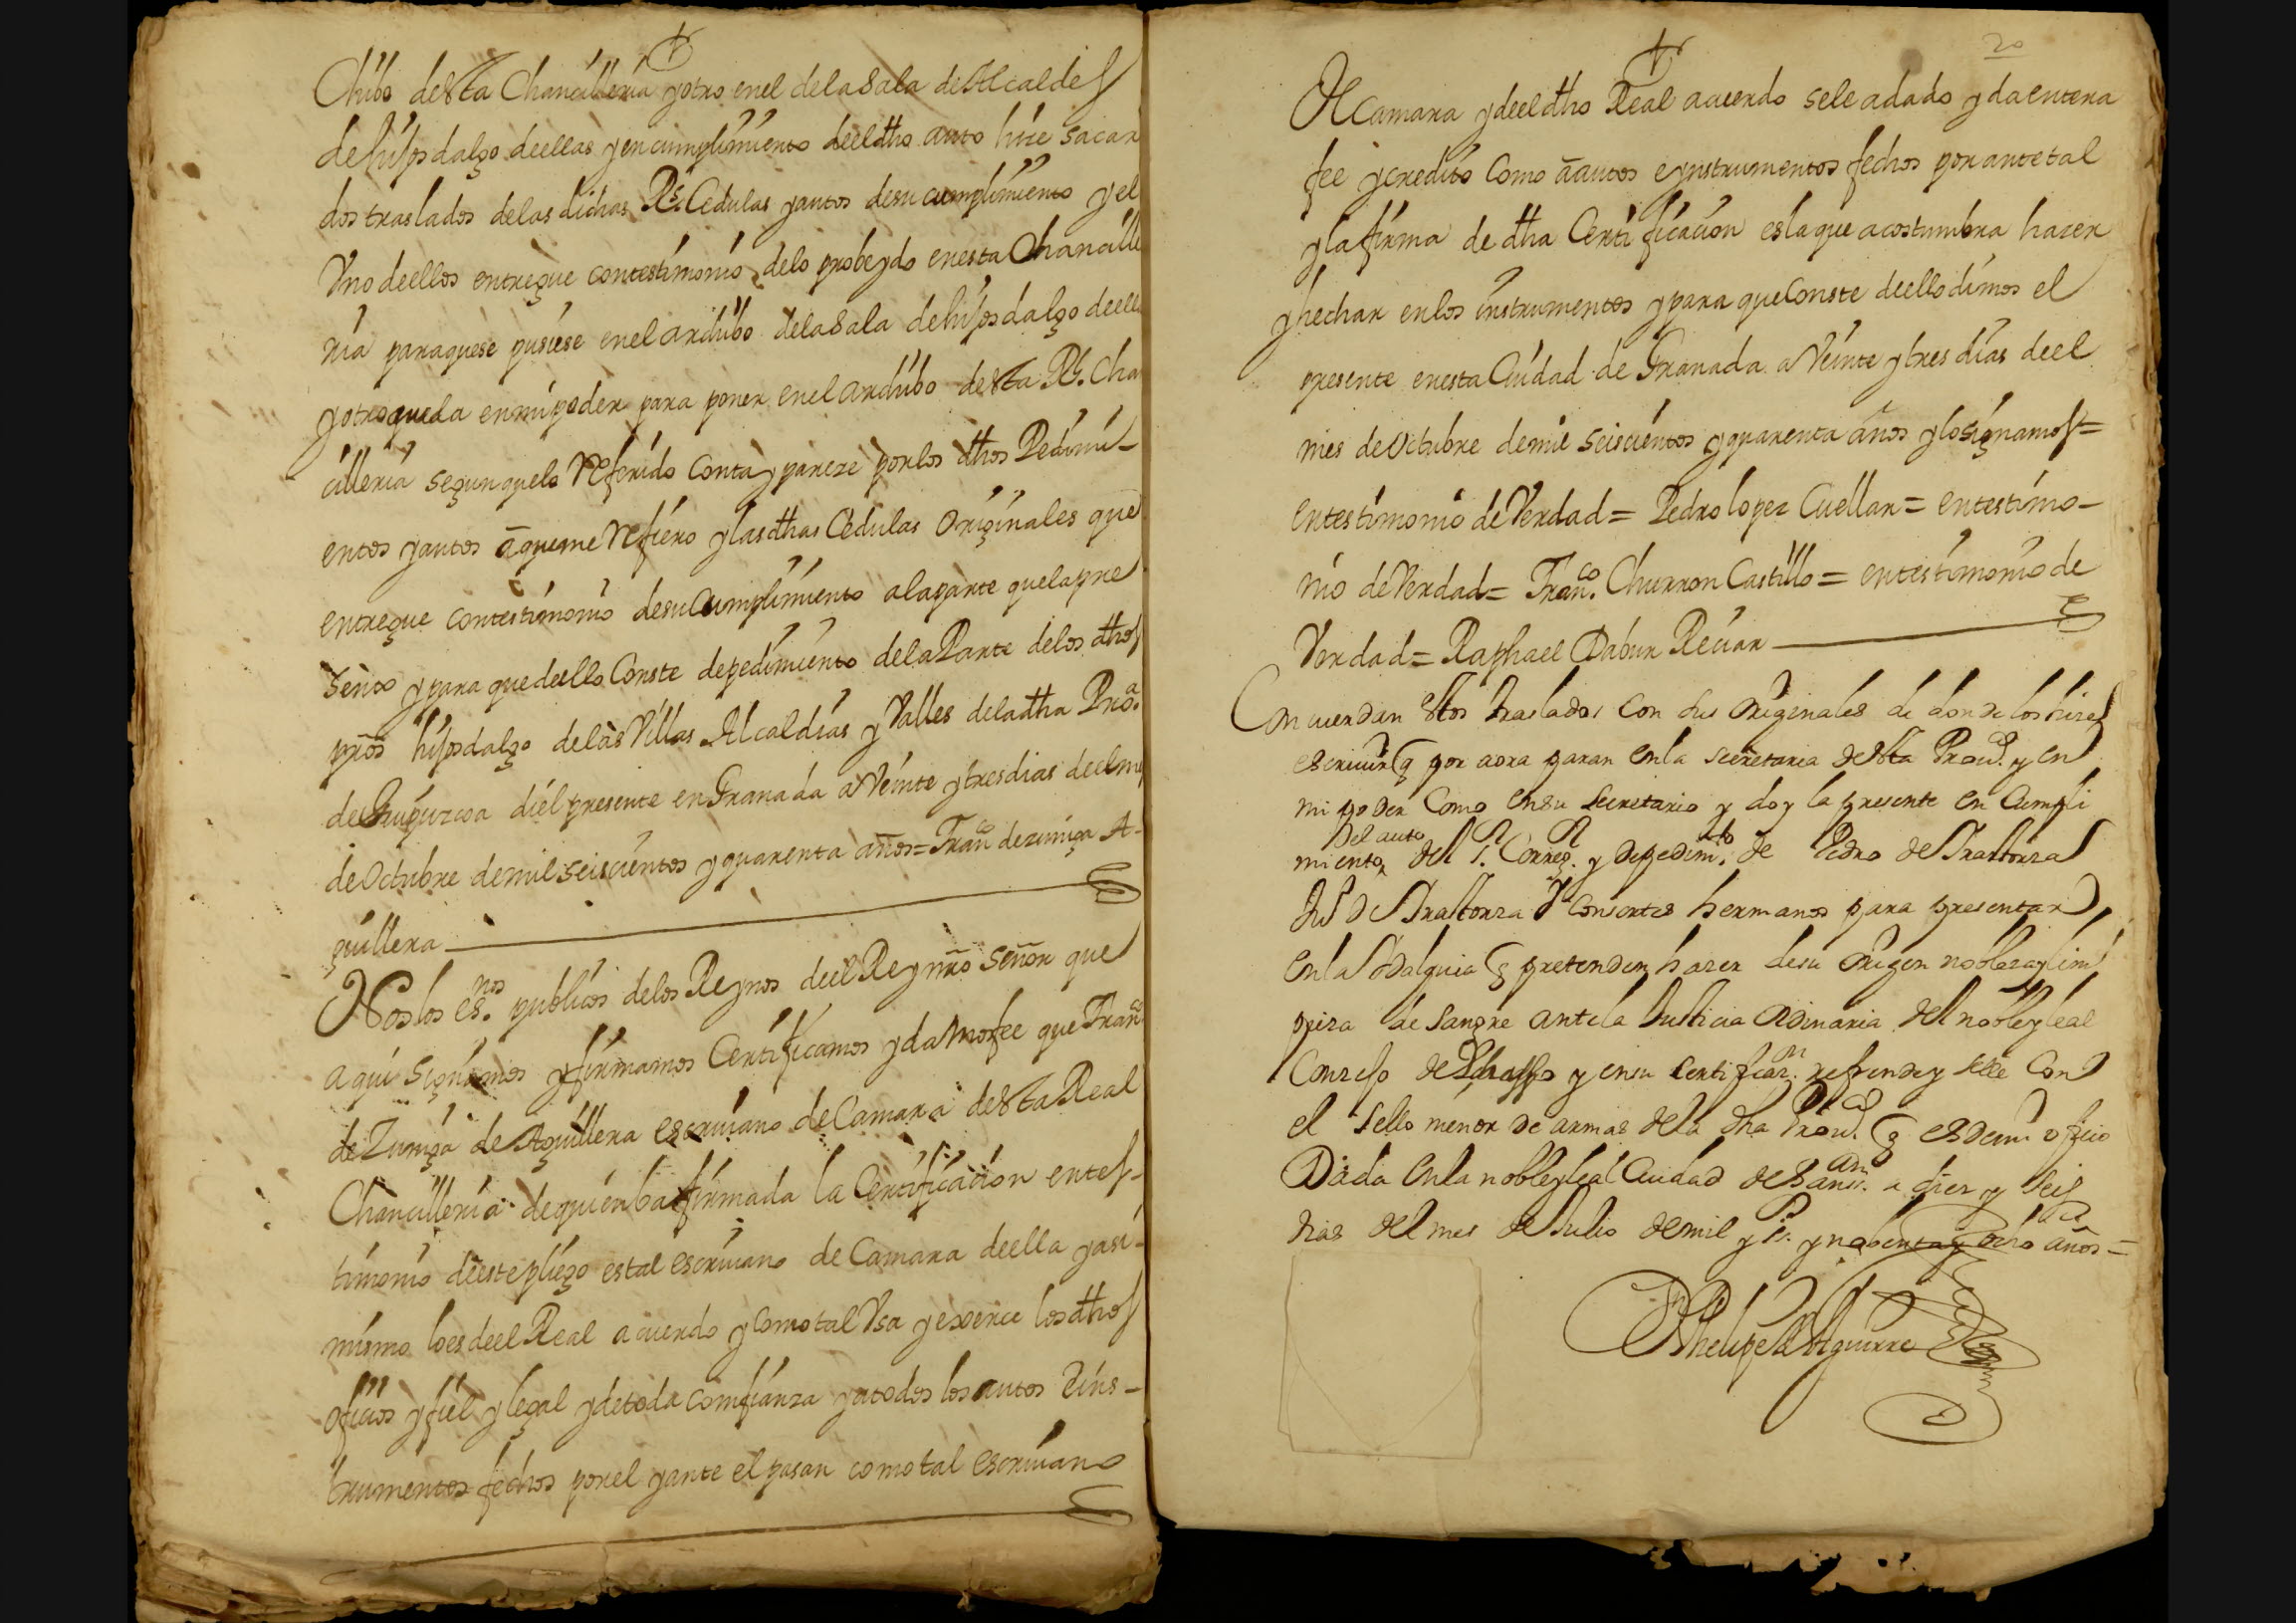 Chibo desta Chancilleria y otro en el de la Sala de Alcaldes
de hijosdalgo de ellas y en cumplimiento de el dho auto hice sacar
dos traslados de las dichas Rs. Cedulas y autos de su cumplimiento y el
Uno de ellos entregue con testimonio de lo probeydo en esta Chancille
ria para que se pusiese en el archibo de la Sala de hijosdalgo de ella
y otro queda en mi poder para poner en el archibo desta Rl. Chan
cilleria segun que lo Referido conta y pareze por los dhos Pedimi-
entos y autos a que me Refiero y las dhas Cedulas Originales que
entregue con testimonio de su Cumplimiento a la parte que la pre
sento y para que de ello Conste de pedimiento de la Parte de los dhos
pros hijosdalgo de las Villas Alcaldias y Valles de la dha Proa.
de Guipuzcoa di el presente en Granada a Veinte y tres dias de el mes
de Octubre de mil seiscientos y quarenta años = Franco de zuniga A-
guillera
Nos los esnos. publicos de los Reynos de el Rey nro Señor que
aqui Signamos y firmamos Certificamos y damos fee que Franco
de Zuniga de Aguillera escriuano de Camara desta Real
Chancilleria de quien ba firmada la Certificacion e ntes-
timonio de este pliego es tal escriuano de Camara de ella y asi-
mismo lo es de el Real acuerdo y como tal Usa y exerce los dhos
oficios y fiel y legal y de toda comfianza y a todos los autos e ins-
trumentos fechos por el y ante el pasan como tal escriuano
20
de Camara y de el dho Real acuerdo se le a dado y da entera
fee y credito como a autos e ynstrumentos fechos por ante tal
y la firma de dha Certificacion es la que acostumbra hacer
y hechar en los instrumentos y para que Conste de ello dimos el
presente en esta Ciudad de Granada a Veinte y tres dias de el
mes de Octubre de mil seiscientos y quarenta años y lo signamos =
en testimonio de Verdad = Pedro lopez Cuellar = en testimo-
nio de Verdad = Franco. Churron Castillo = en testimonio de
Verdad = Raphael Dabur Recian
Concuerdan estos traslados con sus Originales de donde los hize
escriuir q por aora paran en la secretaria desta Prou.a y en
mi poder Como en su Secretario y doy la presente en Cumpli
del auto
miento del S. Correg.r y de pedim.to de Pedro de
de y consortes hermanos para presentar
en la ydalguia q pretenden hazer de su Origen nobleza y lim
pieza de sangre ante la Justicia Ordinaria del noble y leal
Conzejo de y en su Certificaon. refrende y selle Con
el sello menor de armas de la dha Prou.a q es de mi oficio
Dada en la noble y leal Ciudad de San an. a diez y seis
dias del mes de Julio de mil y s. y nobenta y ocho años =
Phelipe de Aguirre